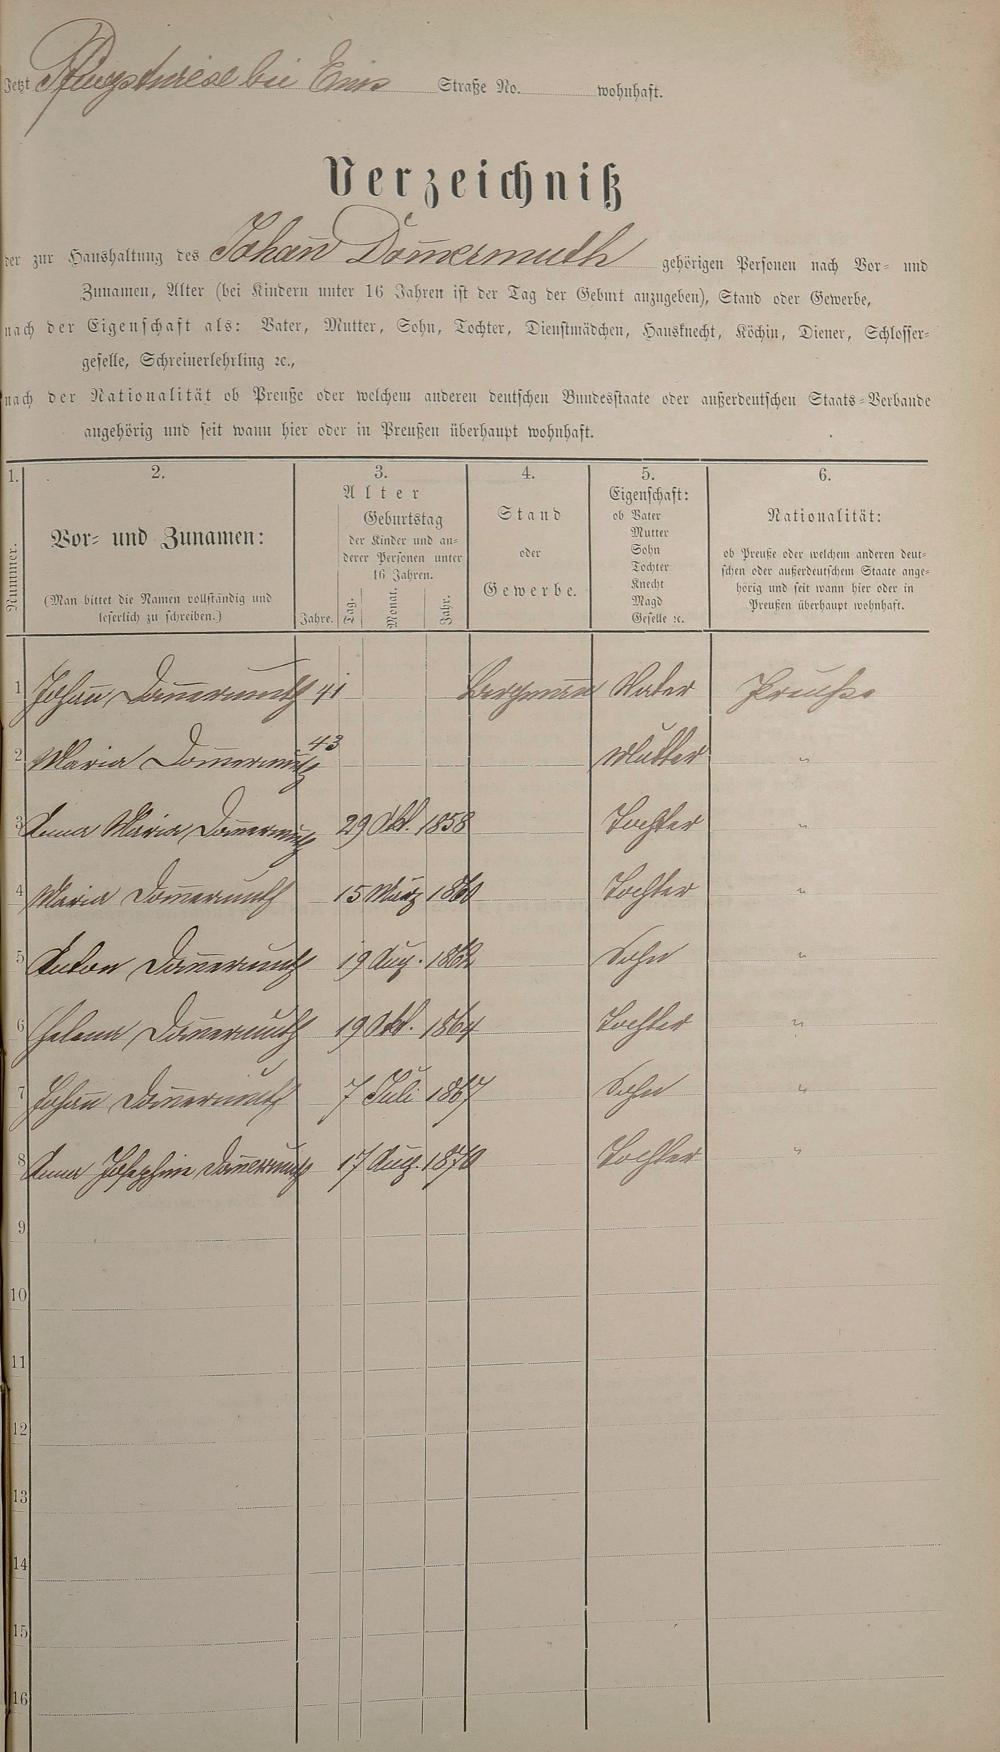 Jetzt Pfingstwiese bei Ems Straße No. wohnhaft.
Verzeichniß
der zur Haushaltung des Johan̄ Dom̄ermuth gehörigen Personen nach Vor- und
Zunamen, Alter (bei Kindern unter 16 Jahren ist der Tag der Geburt anzugeben), Stand oder Gewerbe,
nach der Eigenschaft als: Vater, Mutter, Sohn, Tochter, Dienstmädchen, Hausknecht, Köchin, Diener, Schlosser-
geselle, Schreinerlehrling ꝛc.,
nach der Nationalität ob Preuße oder welchem anderen deutschen Bundesstaate oder außerdeutschen Staats-Verbande
angehörig und seit wann hier oder in Preußen überhaupt wohnhaft.
1. 2. 3. 4. 5. 6.
Nummer.
Vor- und Zunamen:
(Man bittet die Namen vollständig und
leserlich zu schreiben.)
Alter
Jahre.
Geburtstag
der Kinder und an-
derer Personen unter
16 Jahren.
Tag. Monat. Jahr.
Stand
oder
Gewerbe.
Eigenschaft:
ob Vater
Mutter
Sohn
Tochter
Knecht
Magd
Geselle ꝛc.
Nationalität:
ob Preuße oder welchem anderen deut-
schen oder außerdeutschem Staate ange-
hörig und seit wann hier oder in
Preußen überhaupt wohnhaft.
1 Johan̄ Dom̄ermuth 41 Bergmann Vater Preuße
2 Maria Dom̄ermuth 43 Mutter "
3 Anna Maria Dom̄ermuth 29 Okt. 1858 Tochter "
4 Maria Dom̄ermuth 15 März 1860 Tochter "
5 Anton Dom̄ermuth 19 Aug. 1862 Sohn "
6 Helena Dom̄ermuth 19 Okt. 1864 Tochter "
7 Johan̄ Dom̄ermuth 7 Juli 1867 Sohn "
8 Anna Josephine Dom̄ermuth 17 Aug. 1870 Tochter "
9
10
11
12
13
14
15
16